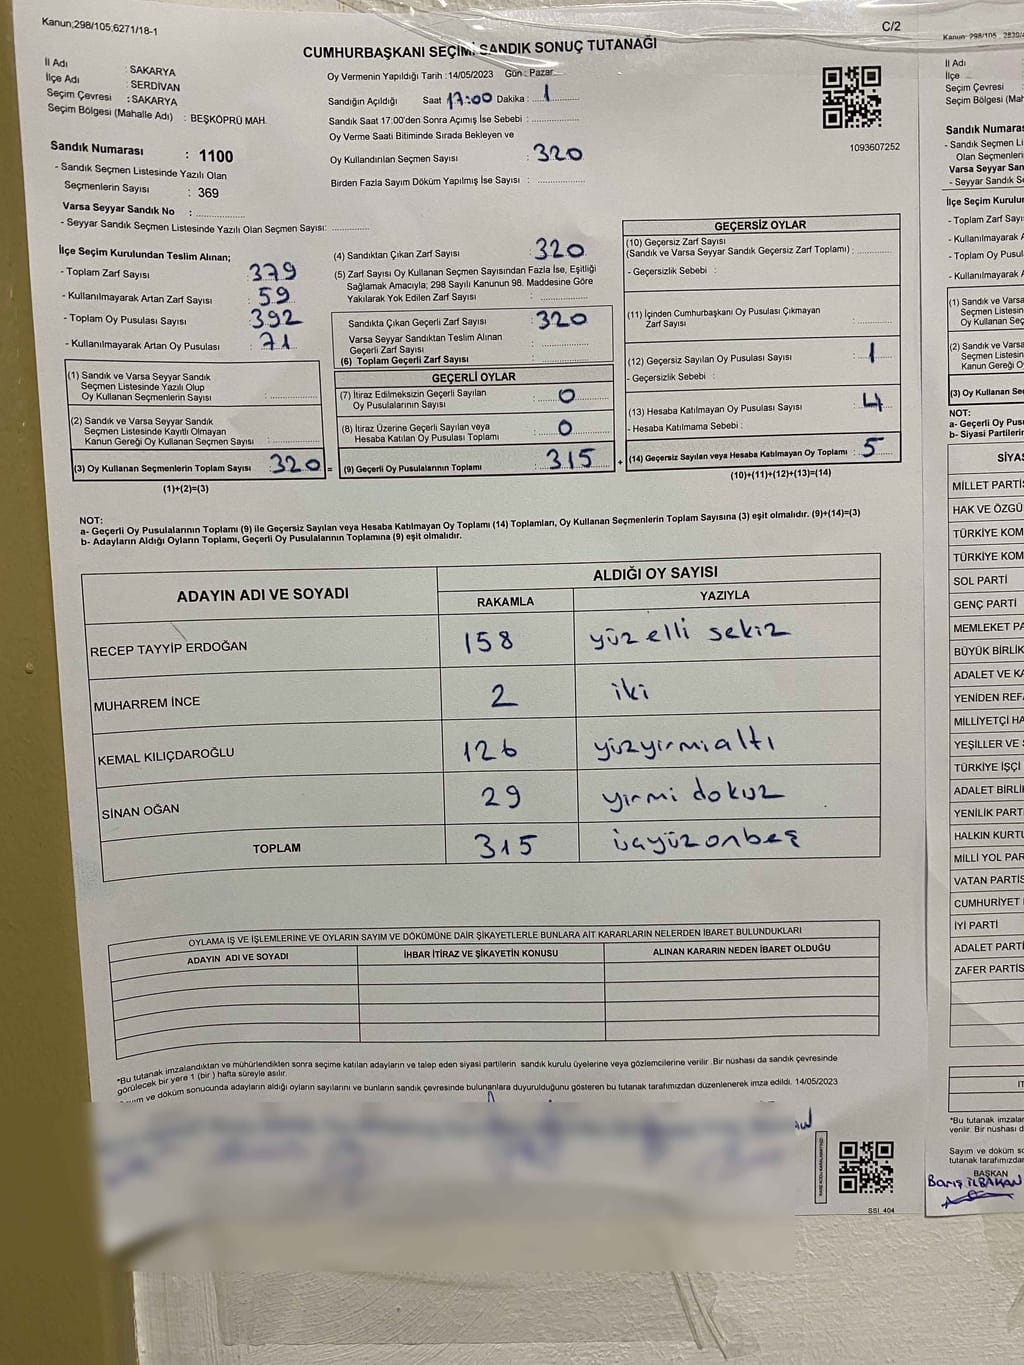 Kanun;298/105;6271/18-1
C/2
CUMHURBAŞKANI SEÇİMİ SANDIK SONUÇ TUTANAĞI
İl Adı : SAKARYA
İlçe Adı : SERDİVAN
Seçim Çevresi : SAKARYA
Seçim Bölgesi (Mahalle Adı) : BEŞKÖPRÜ MAH.
Sandık Numarası : 1100
- Sandık Seçmen Listesinde Yazılı Olan
Seçmenlerin Sayısı : 369
Varsa Seyyar Sandık No :
- Seyyar Sandık Seçmen Listesinde Yazılı Olan Seçmen Sayısı:
Oy Vermenin Yapıldığı Tarih :14/05/2023 Gün : Pazar
Sandığın Açıldığı Saat 17:00 Dakika : 1
Sandık Saat 17:00'den Sonra Açımış İse Sebebi :
Oy Verme Saati Bitiminde Sırada Bekleyen ve
Oy Kullandırılan Seçmen Sayısı : 320
Birden Fazla Sayım Döküm Yapılmış İse Sayısı :
1093607252
İlçe Seçim Kurulundan Teslim Alınan;
- Toplam Zarf Sayısı : 379
- Kullanılmayarak Artan Zarf Sayısı : 59
- Toplam Oy Pusulası Sayısı : 392
- Kullanılmayarak Artan Oy Pusulası : 71
(1) Sandık ve Varsa Seyyar Sandık
Seçmen Listesinde Yazılı Olup
Oy Kullanan Seçmenlerin Sayısı :
(2) Sandık ve Varsa Seyyar Sandık
Seçmen Listesinde Kayıtlı Olmayan
Kanun Gereği Oy Kullanan Seçmen Sayısı :
(3) Oy Kullanan Seçmenlerin Toplam Sayısı : 320 =
(1)+(2)=(3)
(4) Sandıktan Çıkan Zarf Sayısı : 320
(5) Zarf Sayısı Oy Kullanan Seçmen Sayısından Fazla İse, Eşitliği
Sağlamak Amacıyla; 298 Sayılı Kanunun 98. Maddesine Göre
Yakılarak Yok Edilen Zarf Sayısı :
Sandıkta Çıkan Geçerli Zarf Sayısı : 320
Varsa Seyyar Sandıktan Teslim Alınan
Geçerli Zarf Sayısı :
(6) Toplam Geçerli Zarf Sayısı :
GEÇERLİ OYLAR
(7) İtiraz Edilmeksizin Geçerli Sayılan
Oy Pusulalarının Sayısı : 0
(8) İtiraz Üzerine Geçerli Sayılan veya
Hesaba Katılan Oy Pusulası Toplamı : 0
(9) Geçerli Oy Pusulalarının Toplamı : 315 +
GEÇERSİZ OYLAR
(10) Geçersiz Zarf Sayısı
(Sandık ve Varsa Seyyar Sandık Geçersiz Zarf Toplamı) :
- Geçersizlik Sebebi :
(11) İçinden Cumhurbaşkanı Oy Pusulası Çıkmayan
Zarf Sayısı :
(12) Geçersiz Sayılan Oy Pusulası Sayısı : 1
- Geçersizlik Sebebi :
(13) Hesaba Katılmayan Oy Pusulası Sayısı : 4
- Hesaba Katılmama Sebebi :
(14) Geçersiz Sayılan veya Hesaba Katılmayan Oy Toplamı : 5
(10)+(11)+(12)+(13)=(14)
NOT:
a- Geçerli Oy Pusulalarının Toplamı (9) ile Geçersiz Sayılan veya Hesaba Katılmayan Oy Toplamı (14) Toplamları, Oy Kullanan Seçmenlerin Toplam Sayısına (3) eşit olmalıdır. (9)+(14)=(3)
b- Adayların Aldığı Oyların Toplamı, Geçerli Oy Pusulalarının Toplamına (9) eşit olmalıdır.
ADAYIN ADI VE SOYADI
ALDIĞI OY SAYISI
RAKAMLA YAZIYLA
RECEP TAYYİP ERDOĞAN 158 yüz elli sekiz
MUHARREM İNCE 2 iki
KEMAL KILIÇDAROĞLU 126 yüzyirmialtı
SİNAN OĞAN 29 yirmi dokuz
TOPLAM 315 üçyüzonbeş
OYLAMA İŞ VE İŞLEMLERİNE VE OYLARIN SAYIM VE DÖKÜMÜNE DAİR ŞİKAYETLERLE BUNLARA AİT KARARLARIN NELERDEN İBARET BULUNDUKLARI
ADAYIN ADI VE SOYADI İHBAR İTİRAZ VE ŞİKAYETİN KONUSU ALINAN KARARIN NEDEN İBARET OLDUĞU
*Bu tutanak imzalandıktan ve mühürlendikten sonra seçime katılan adayların ve talep eden siyasi partilerin sandık kurulu üyelerine veya gözlemcilerine verilir .Bir nüshası da sandık çevresinde
görülecek bir yere 1 (bir ) hafta süreyle asılır.
ve döküm sonucunda adayların aldığı oyların sayılarını ve bunların sandık çevresinde bulunanlara duyurulduğunu gösteren bu tutanak tarafımızdan düzenlenerek imza edildi. 14/05/2023
SSI_404
Kanun 298/105
İl Adı
İlçe
Seçim Çevresi
Seçim Bölgesi (Mah
Sandık Numaras
- Sandık Seçmen Li
Olan Seçmenleri
Varsa Seyyar San
- Seyyar Sandık Se
İlçe Seçim Kurulu
- Toplam Zarf Sayı
- Kullanılmayarak A
- Toplam Oy Pusul
- Kullanılmayarak
(1) Sandık ve Varsa
Seçmen Listesin
Oy Kullanan Seç
(2) Sandık ve Varsa
Seçmen Listesin
Kanun Gereği O
(3) Oy Kullanan Seç
NOT:
a- Geçerli Oy Pusu
b- Siyasi Partilerin
SİYAS
MİLLET PARTİS
HAK VE ÖZGÜ
TÜRKİYE KOM
TÜRKİYE KOM
SOL PARTİ
GENÇ PARTİ
MEMLEKET PA
BÜYÜK BİRLİK
ADALET VE KA
YENİDEN REFA
MİLLİYETÇİ HA
YEŞİLLER VE S
TÜRKİYE İŞÇİ
ADALET BİRLİ
YENİLİK PART
HALKIN KURTU
MİLLİ YOL PAR
VATAN PARTİS
CUMHURİYET
İYİ PARTİ
ADALET PARTİ
ZAFER PARTİS
*Bu tutanak imzalar
verilir. Bir nüshası d
Sayım ve döküm so
tutanak tarafımızdar
BAŞKAN
Barış İLBAKAN